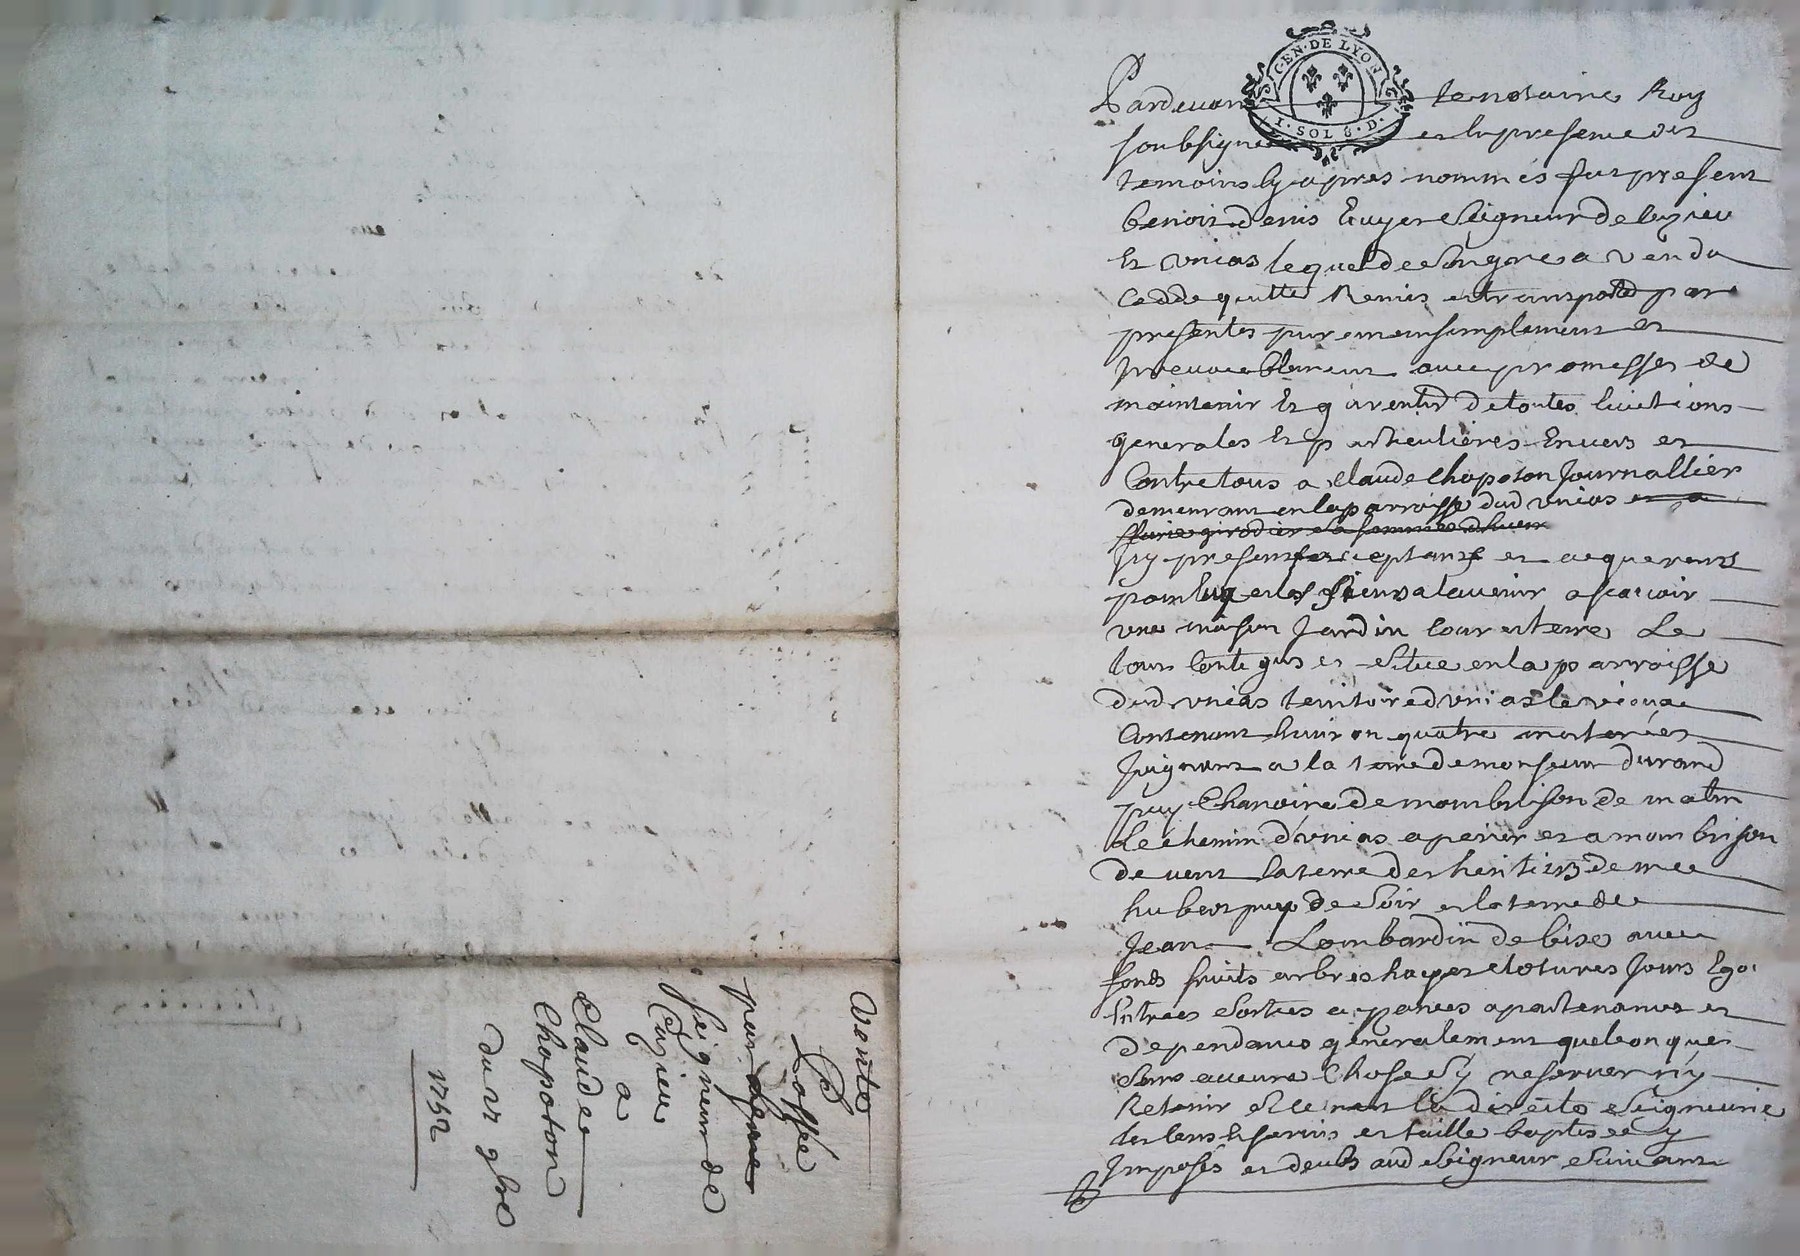 GEN·DE LYON
I·SOL 8·D·
Pardevant le notaire Roy
soubsigné et en presence des
temoins cy apres nommés fut present
benoit denis Ecuyer Seigneur de Cuzieu
Et Unias lequel de Son gré a vendu
cedde quitte Remis et transporté par
presentes purement simplement et
Irrevocablement avec promesses de
maintenir Et garentir de toutes Evictions
generales Et particulieres Envers et
Contre tous a Claude Chapoton Journallier
demeurant en la parroisse dud Unias et a
icy present acceptant et acquereur
pour luy et les siens a lavenir a scavoir
une maison Jardin Cour et terre Le
tout Contigus et Situé en la parroisse
dud Unias territoire dUnias le vieux
Contenant Environ quatre
Joignant a la terre de monsieur durand
puy Chanoine de mombrison de matin
Le chemin dUnias a et a mombrison
de vent La terre des heritiers de me
hubert puy de Soir et la terre de
Jean Lombardin de bise avec
fonds fruits arbres hayes Clotures Jours Ego
Entrées Sorties apartenances et
dependances generalement quelconques
Sans aucune Chose Sy reserver ny
Retenir et la directe Seigneurie
les Cens et Servis et taille
Imposés et deubs aud Seigneur Suivant
Vente
Passée
par
seigneur de
Cuzieu
a
Claude
Chapoton
du 6 9bre
1752